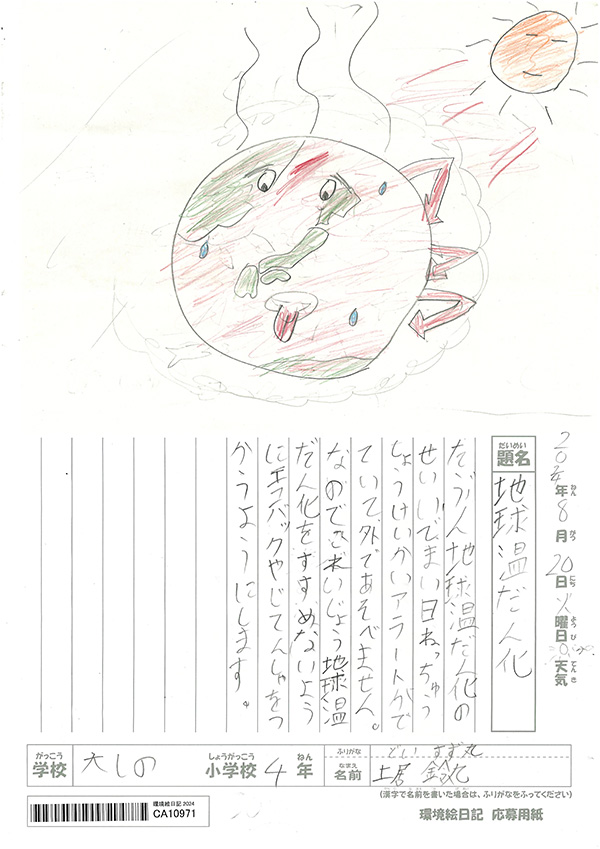 2024年8月20日火曜日 天気
ねん がつ にち ようび てんき
だいめい
題名
地球温だん化
たぶん地球温だん化の
せいいでまい日ねっちゅう
しょうけいかいアラートがで
ていて外であそべません。
なのでこれいじょう地球温
だん化をすすめないよう
にエコバックやじてんしゃをつ
かうようにします。
がっこう
学校
大しの
しょうがっこう
小学校
4
ねん
年
ふりがな
どい すず丸
なまえ
名前
土居 鈴丸
(漢字で名前を書いた場合は、ふりがなをふってください)
環境絵日記 2024
CA10971
環境絵日記 応募用紙